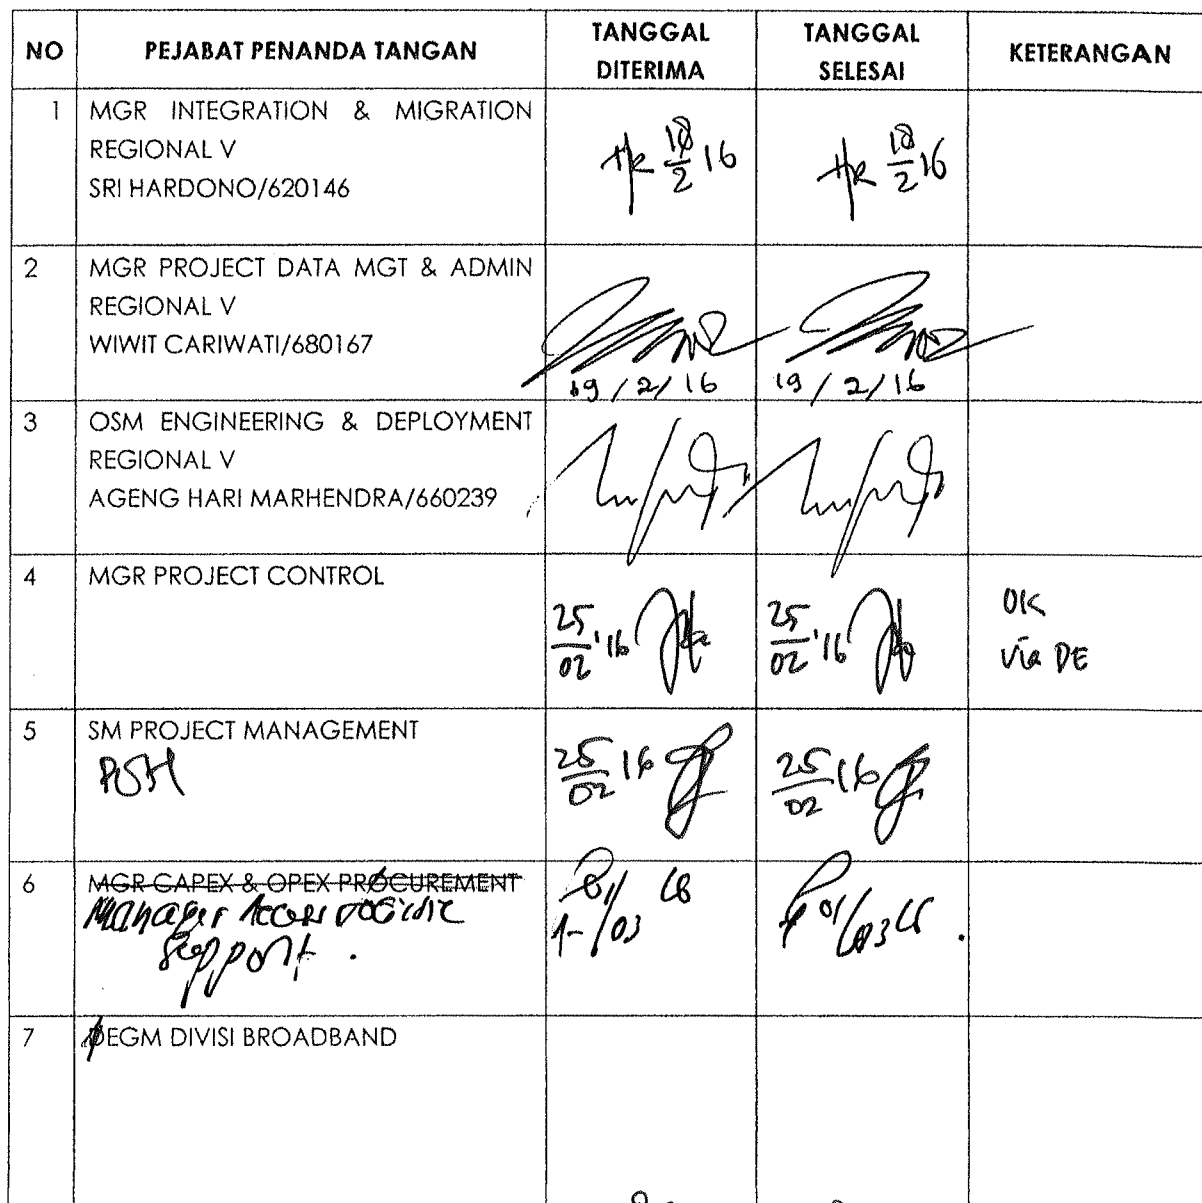 NO PEJABAT PENANDA TANGAN TANGGAL DITERIMA TANGGAL SELESAI KETERANGAN
1 MGR INTEGRATION & MIGRATION
REGIONAL V
SRI HARDONO/620146
18/2 16 18/2 16
2 MGR PROJECT DATA MGT & ADMIN
REGIONAL V
WIWIT CARIWATI/680167
19/2/16 19/2/16
3 OSM ENGINEERING & DEPLOYMENT
REGIONAL V
AGENG HARI MARHENDRA/660239
4 MGR PROJECT CONTROL
25/02 '16 25/02 '16
OK
via DE
5 SM PROJECT MANAGEMENT
25/02 16 25/02 16
6 MGR CAPEX & OPEX PROCUREMENT
Manager Access
Support.
7 DEGM DIVISI BROADBAND